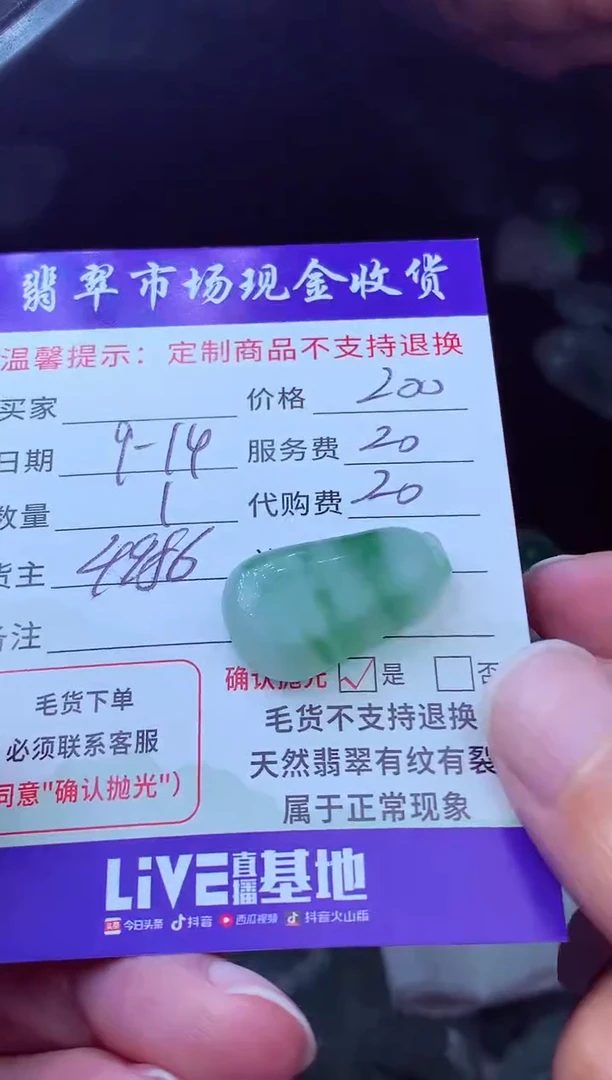 翡翠市场现金收货
温馨提示：定制商品不支持退换
买家
价格 200
日期 9-14
服务费 20
数量 1
代购费 20
货主 4986
备注
确认抛光 ☑是 □否
毛货下单
必须联系客服
同意"确认抛光")
毛货不支持退换
天然翡翠有纹有裂
属于正常现象
LiVE直播基地
头条 今日头条 抖音 西瓜视频 抖音火山版